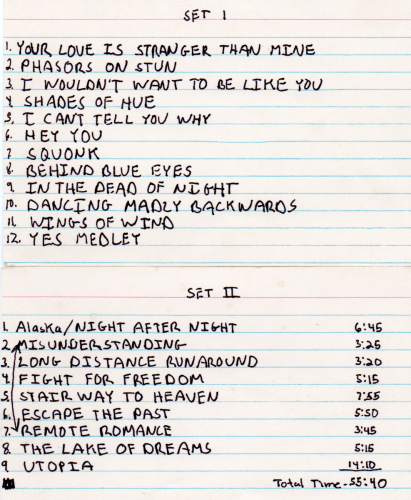 SET I
1. YOUR LOVE IS STRANGER THAN MINE
2. PHASORS ON STUN
3. I WOULDN'T WANT TO BE LIKE YOU
4. SHADES OF HUE
5. I CAN'T TELL YOU WHY
6. HEY YOU
7. SQUONK
8. BEHIND BLUE EYES
9. IN THE DEAD OF NIGHT
10. DANCING MADLY BACKWARDS
11. WINGS OF WIND
12. YES MEDLEY
SET II
1. Alaska/NIGHT AFTER NIGHT 6:45
2. MISUNDERSTANDING 3:25
3. LONG DISTANCE RUNAROUND 3:20
4. FIGHT FOR FREEDOM 5:15
5. STAIRWAY TO HEAVEN 7:55
6. ESCAPE THE PAST 5:50
7. REMOTE ROMANCE 3:45
8. THE LAKE OF DREAMS 5:15
9. UTOPIA 14:10
Total Time - 55:40